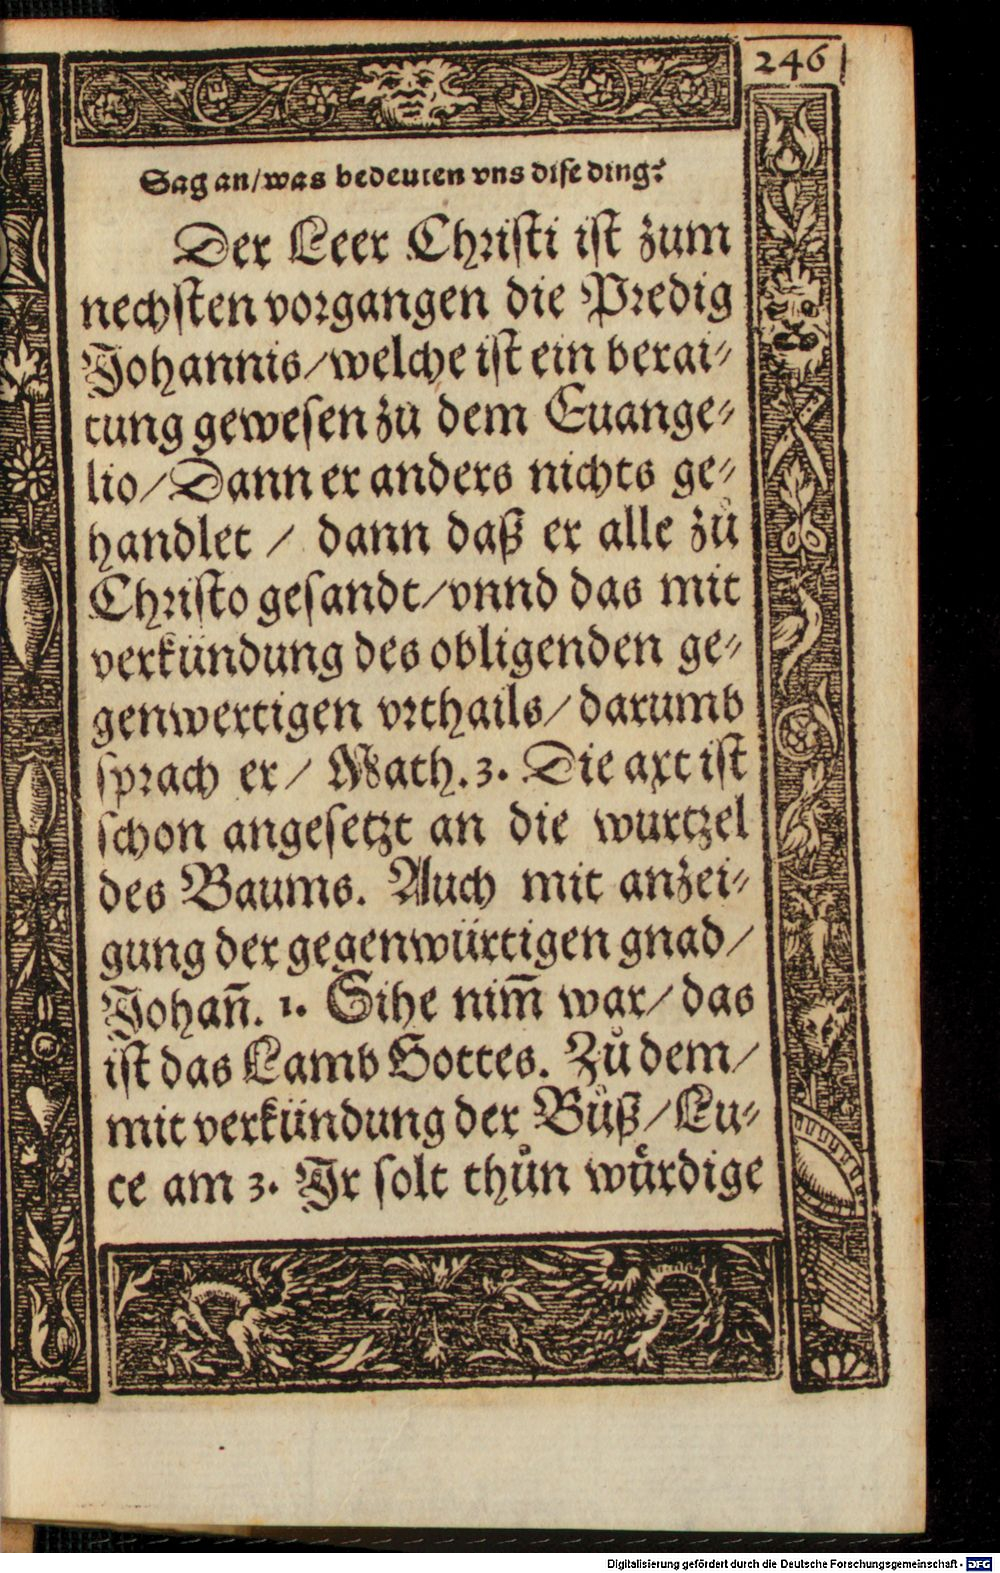 246
Sag an/was bedeuten vns dise ding?
Der Leer Christi ist zum
nechsten vorgangen die Predig
Johannis/welche ist ein berai⸗
tung gewesen zů dem Euange⸗
lio/Dann er anders nichts ge⸗
handlet / dann daß er alle zů
Christo gesandt/vnnd das mit
verkündung des obligenden ge⸗
genwertigen vrthails/darumb
sprach er/ Math. 3. Die axt ist
schon angesetzt an die wurtzel
des Baums. Auch mit anzei⸗
gung der gegenwürtigen gnad/
Johañ. 1. Sihe nim̃ war/das
ist das Lamb Gottes. Zů dem/
mit verkündung der Bůß/Lu⸗
ce am 3. Jr solt thůn wůrdige
Digitalisierung gefördert durch die Deutsche Forschungsgemeinschaft - DFG